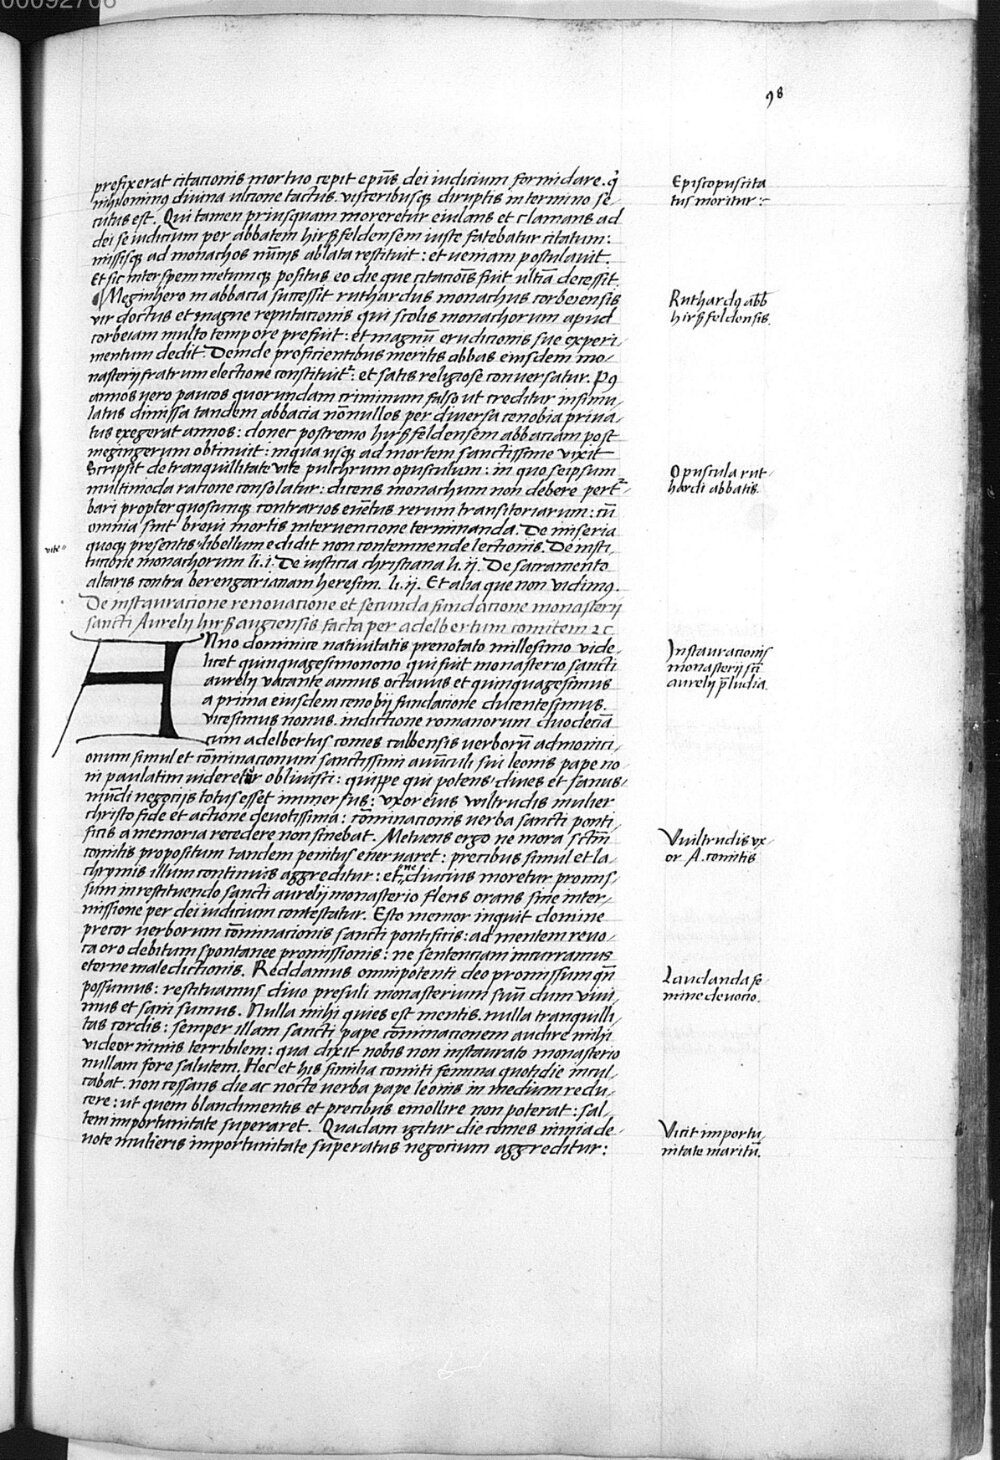 98
prefixerat citationis mortuo cepit epūs dei iudicium formidare. q̄
nihilominus diuina ulcione tactus. visceribusq; diruptis in termino se/
cutus est. Qui tamen priusquam moreretur eiulans et clamans ad
dei se iudicium per abbatem hirsfeldensem iuste fatebatur citatum:
missisq; ad monachos nūcijs ablata restituit: et ueniam postulauit.
Et sic inter spem metumq; positus eo die que citacōis fuit ultīa decessit.
Meginhero in abbacia successit ruthardus monachus corbeiensis
vir doctus et magne reputacionis qui scolis monachorum apud
corbeiam multo tempore prefuit: et magnū erudicionis sue experi/
mentum dedit. Deinde proficientibus meritis abbas eiusdem mo/
nasterij fratrum electione constituit᷑: et satis religiose conuersatur. P9
annos uero paucos quorundam criminum falso ut creditur insimu/
latus dimissa tandem abbacia nōnullos per diuersa cenobia priua/
tus exegerat annos: donec postremo hirsfeldensem abbaciam post
megingerum obtinuit: in qua usq; ad mortem sanctissime vixit
Scripsit de tranquillitate vite pulchrum opusculum: in quo seipsum
multimoda racione consolatur: dicens monachum non debere pert᷑/
bari propter quoscunq; contrarios euētus rerum transitoriarum: cū
omnia sint breui mortis interuencione terminanda. De miseria
quoq; presentis libellum edidit non contemnende lectionis. De insti/
tucione monachorum li. i. De iusticia christiana li. ij. De sacramento
vite
altaris contra berengarianam heresim. li. ij. Et alia que non vidimus.
De instauracione renouacione et secunda fundacione monasterij
sancti Aurelij hirsaugiensis facta per adelbertum comitem 2c
ANno dominice natiuitatis prenotato millesimo vide/
licet quinquagesimonono qui fuit monasterio sancti
aurelij vacante annus octauus et quinquagesimus
a prima eiusdem cenobij fundacione ducentesimus.
vicesimus nonus. indictione romanorum duodecīa
cum adelbertus comes calbensis uerborū admonici/
onum simul et cōminacionum sanctissimi auūculi sui leonis pape no/
ni paulatim uideretur obliuisci: quippe qui potens diues et famus/
mūdi negocijs totus esset immersus: vxor eius wiltrudis mulier
christo fide et actione deuotissima: cominacionis verba sancti ponti/
ficis a memoria recedere non sinebat. Metuens ergo ne mora sctm̄
comitis propositum tandem penitus eneruaret: precibus simul et la/
chrymis illum continuis aggreditur: et ne diucius moretur promis/
sum in restituendo sancti aurelij monasterio flens orans sine inter/
missione per dei iudicium contestatur. Esto memor inquit domine
precor uerborum cōminacionis sancti pontificis: ad mentem reuo/
ca oro debitum spontanee promissionis: ne sentenciam incurramus
eterne maledictionis. Reddamus omnipotenti deo promissum qn̄
possumus: restituamus diuo presuli monasterium suū dum viui/
mus et sani sumus. Nulla mihi quies est mentis. nulla tranquilli/
tas cordis: semper illam sancti pape cōminacionem audire mihi
videor nimis terribilem: qua dixit nobis non instaurato monasterio
nullam fore salutem. Hec et his similia comiti femina quotidie incul/
cabat. non cessans die ac nocte uerba pape leonis in medium redu/
cere: ut quem blandimentis et precibus emollire non poterat: sal/
tem importunitate superaret. Quadam igitur die comes nimia de/
uote mulieris importunitate superatus negocium aggreditur:
Episcopus cita
tus moritur:-
Ruthardꝯ abb̄
hirsfeldensis.
Opuscula rut/
hardi abbatis.
Instauracionis
monasterij sc̄ti
aurelij p̄ludia.
Wiltrudis vx/
or A. comitis
Laudanda fe
mine deuocio.
Vicit importu/
nitate maritū.